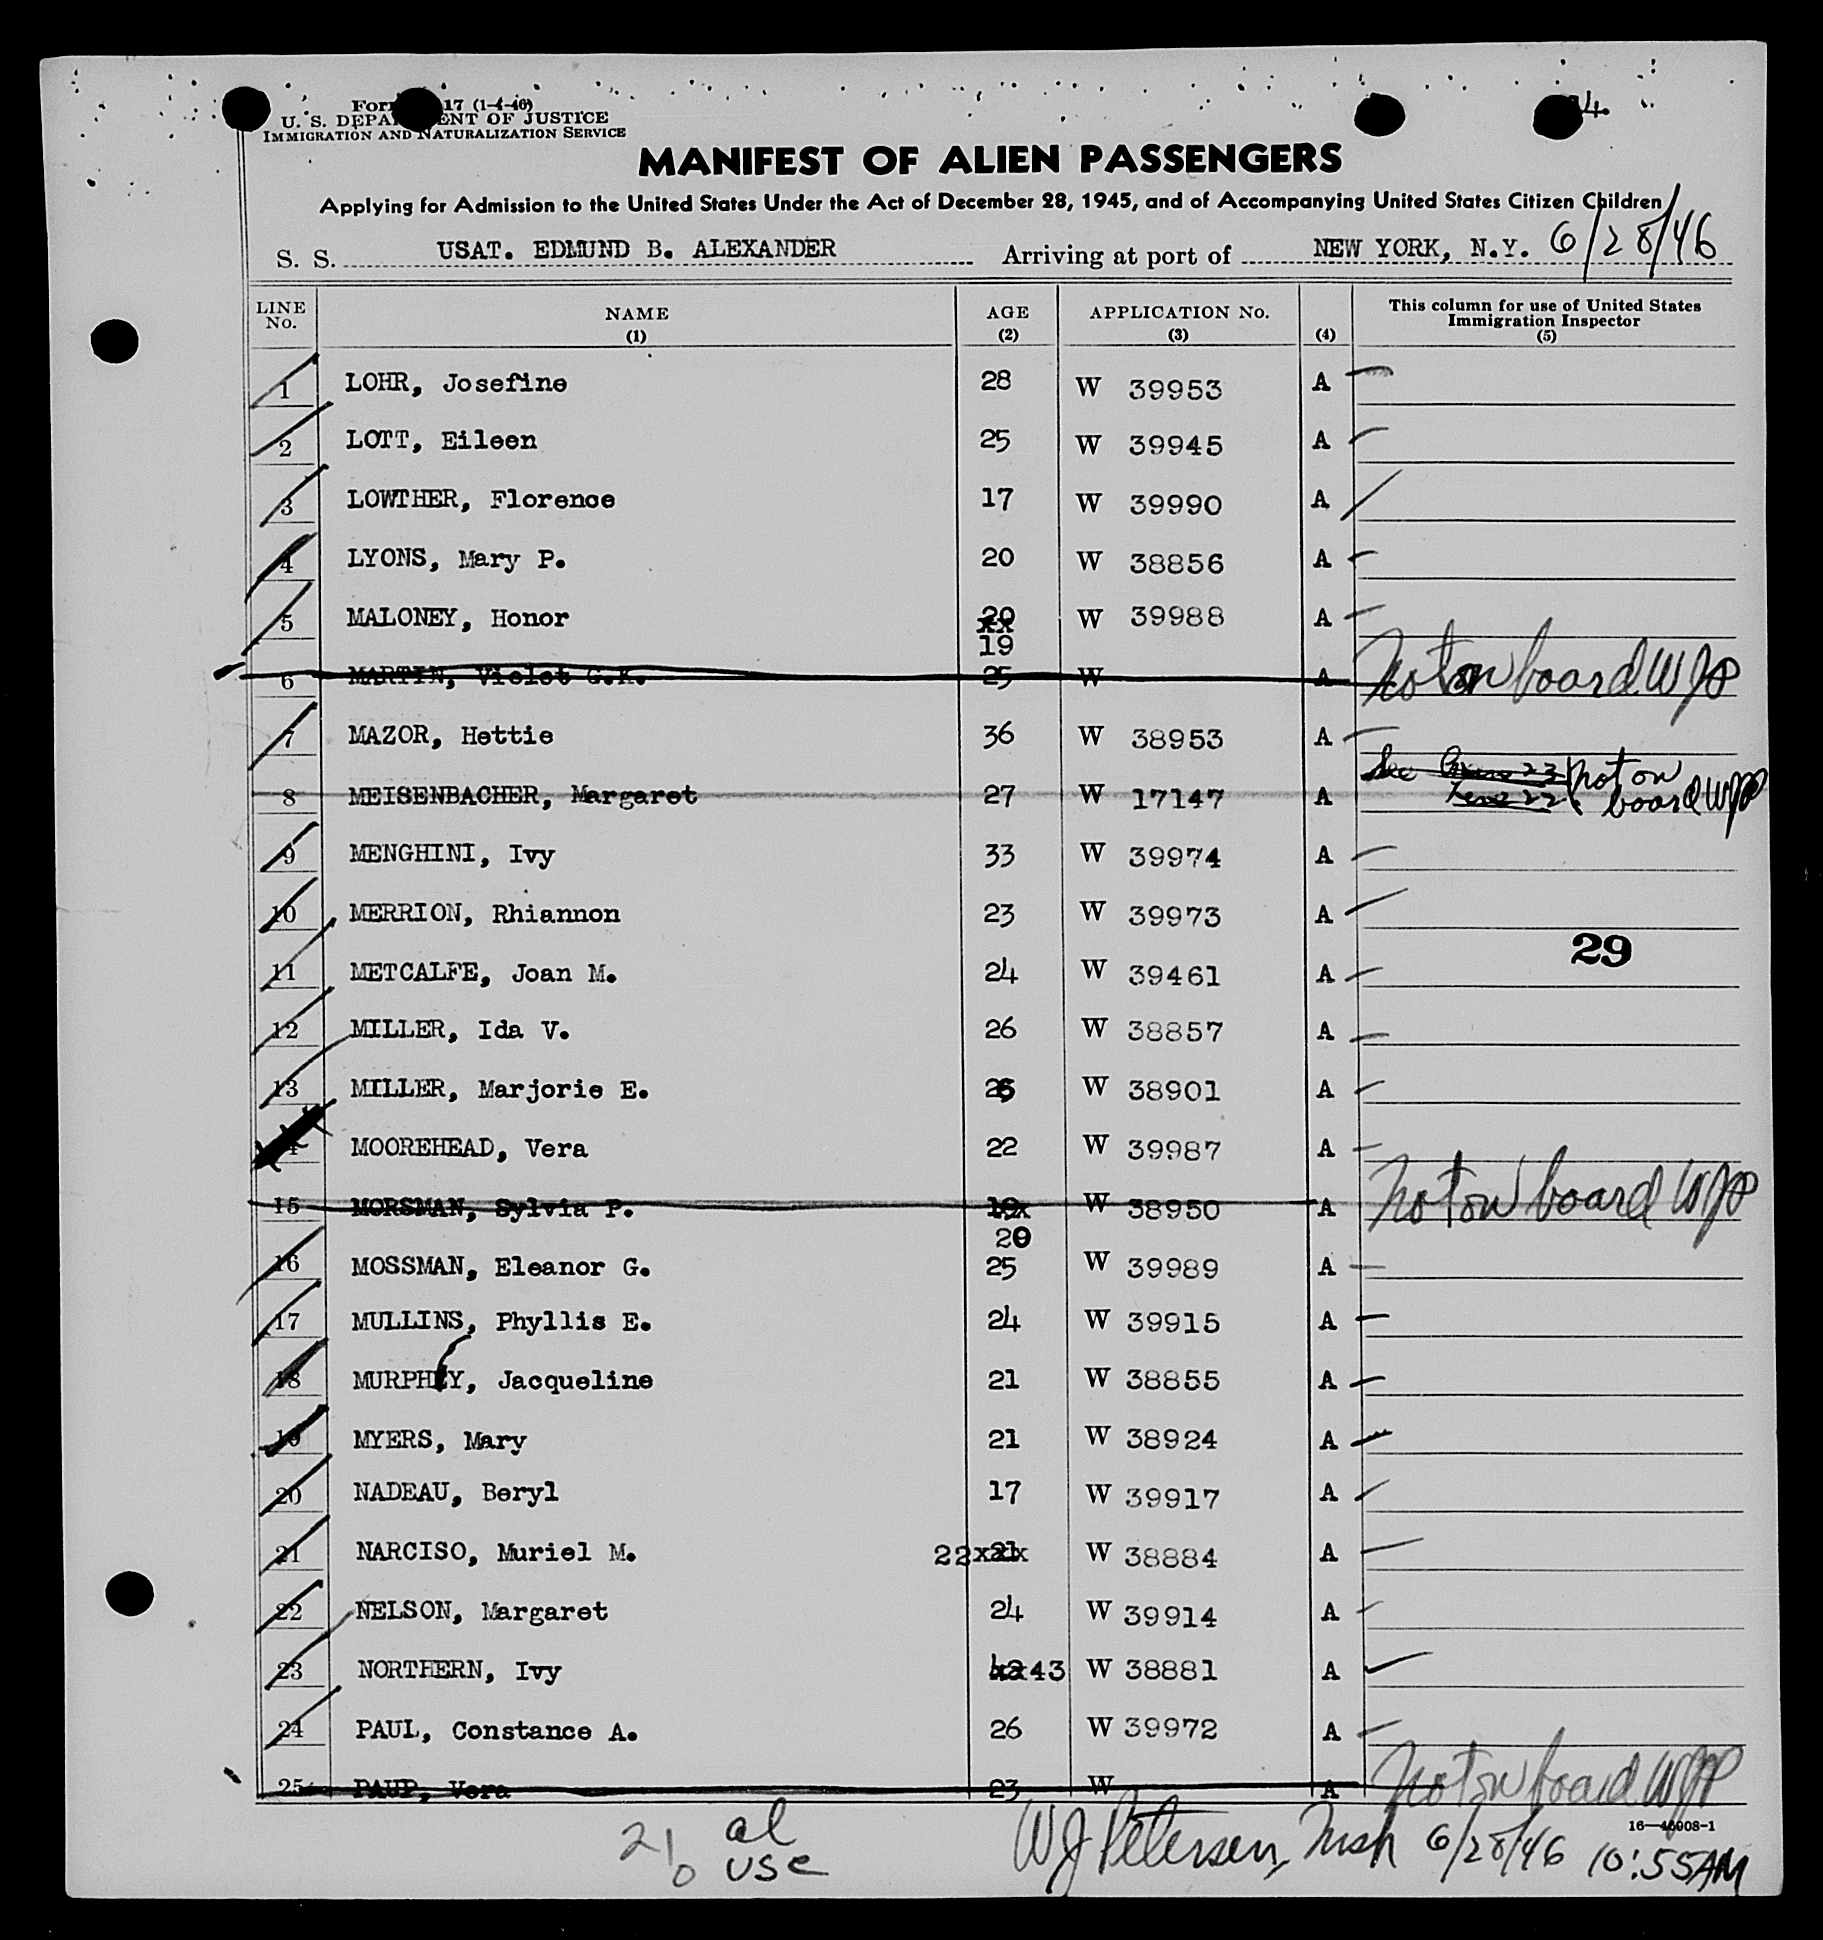 14.
Form 17 (1-4-46)
U. S. DEPARTMENT OF JUSTICE
IMMIGRATION AND NATURALIZATION SERVICE
MANIFEST OF ALIEN PASSENGERS
Applying for Admission to the United States Under the Act of December 28, 1945, and of Accompanying United States Citizen Children
S. S. USAT. EDMUND B. ALEXANDER Arriving at port of NEW YORK, N.Y. 6/28/46
LINE No. NAME (1) AGE (2) APPLICATION No. (3) (4) This column for use of United States Immigration Inspector (5)
1 LOHR, Josefine 28 W 39953 A
2 LOTT, Eileen 25 W 39945 A
3 LOWTHER, Florence 17 W 39990 A
4 LYONS, Mary P. 20 W 38856 A
5 MALONEY, Honor 20 W 39988 A
19
6 MARTIN, Violet G.K. 25 W A Not on board WJP
7 MAZOR, Hettie 36 W 38953 A
8 MEISENBACHER, Margaret 27 W 17147 A See Line 22 not on board WJP
9 MENGHINI, Ivy 33 W 39974 A
10 MERRION, Rhiannon 23 W 39973 A
29
11 METCALFE, Joan M. 24 W 39461 A
12 MILLER, Ida V. 26 W 38857 A
13 MILLER, Marjorie E. W 38901 A
14 MOOREHEAD, Vera 22 W 39987 A
15 MORSMAN, Sylvia P. 19 W 38950 A Not on board WJP
20
16 MOSSMAN, Eleanor G. 25 W 39989 A
17 MULLINS, Phyllis E. 24 W 39915 A
18 MURPHEY, Jacqueline 21 W 38855 A
19 MYERS, Mary 21 W 38924 A
20 NADEAU, Beryl 17 W 39917 A
21 NARCISO, Muriel M. 22 21 W 38884 A
22 NELSON, Margaret 24 W 39914 A
23 NORTHERN, Ivy 42 43 W 38881 A
24 PAUL, Constance A. 26 W 39972 A
25 PAUP, Vera 23 W A Not on board WJP
16—46908-1
21 al
0 USC
W J Petersen, Insp 6/28/46 10:55AM